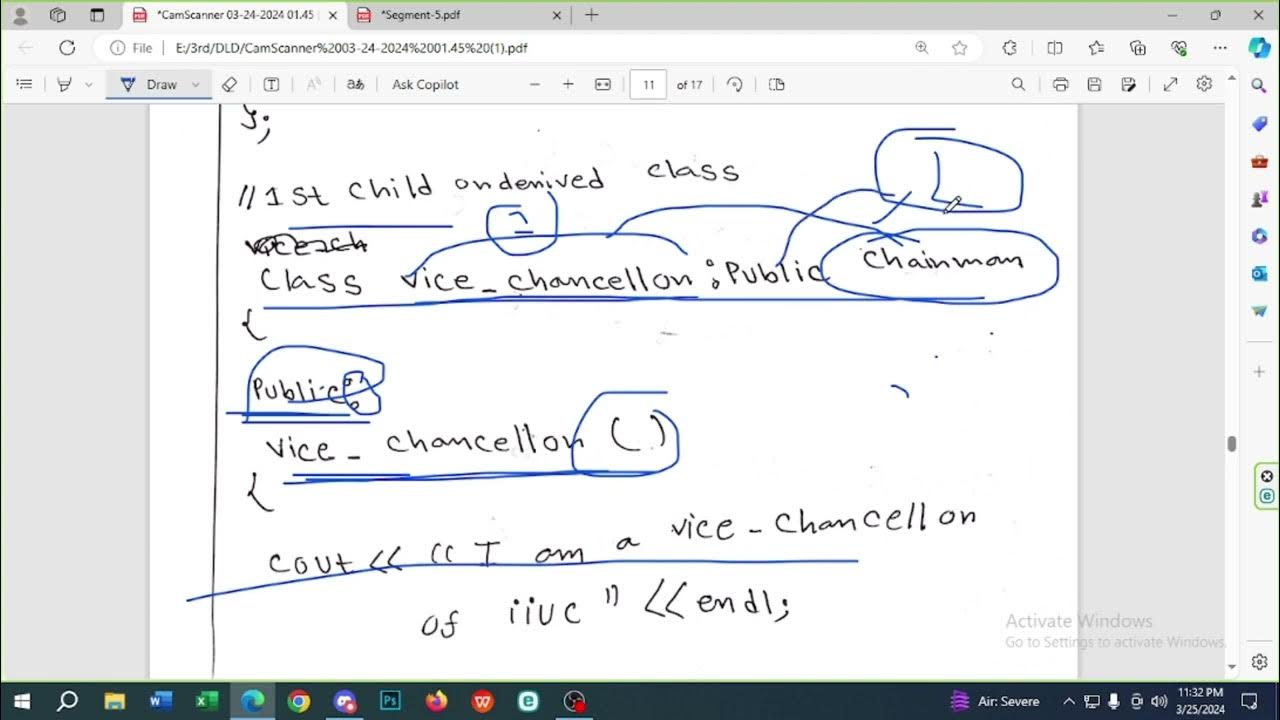 *CamScanner 03-24-2024 01.45
*Segment-5.pdf
File
E:/3rd/DLD/CamScanner%2003-24-2024%2001.45%20(1).pdf
Draw
Ask Copilot
11
of 17
};
// 1st child on denived class
Class vice_chancellon : Public Chainman
{
Public:
Vice_chancellon ( )
{
cout << "I am a vice-chancellon
of iiuc" << endl;
1
2
Activate Windows
Go to Settings to activate Windows.
Air: Severe
11:32 PM
3/25/2024